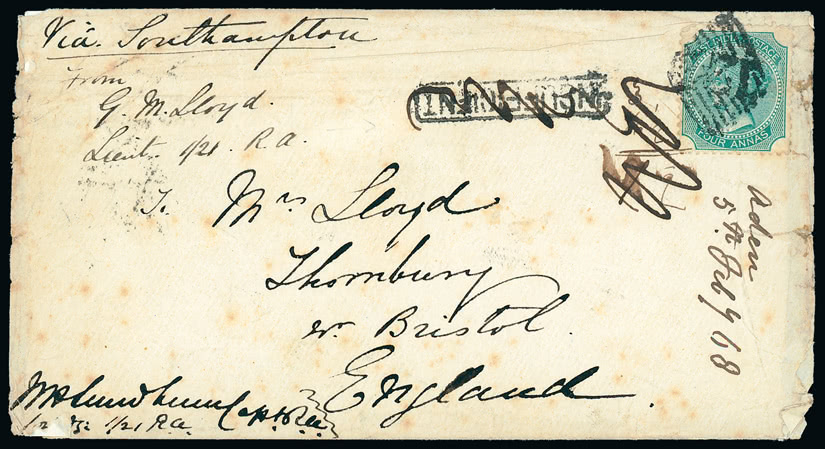 Via. Southampton
From
G. M. Lloyd.
Lieut. 1/21 R.a.
To
Mrs Lloyd
Thornbury
nr. Bristol.
England.
EAST INDIA POSTAGE
FOUR ANNAS
Aden
5th Feby 68
Capt. R.a.
1/21 R.a.